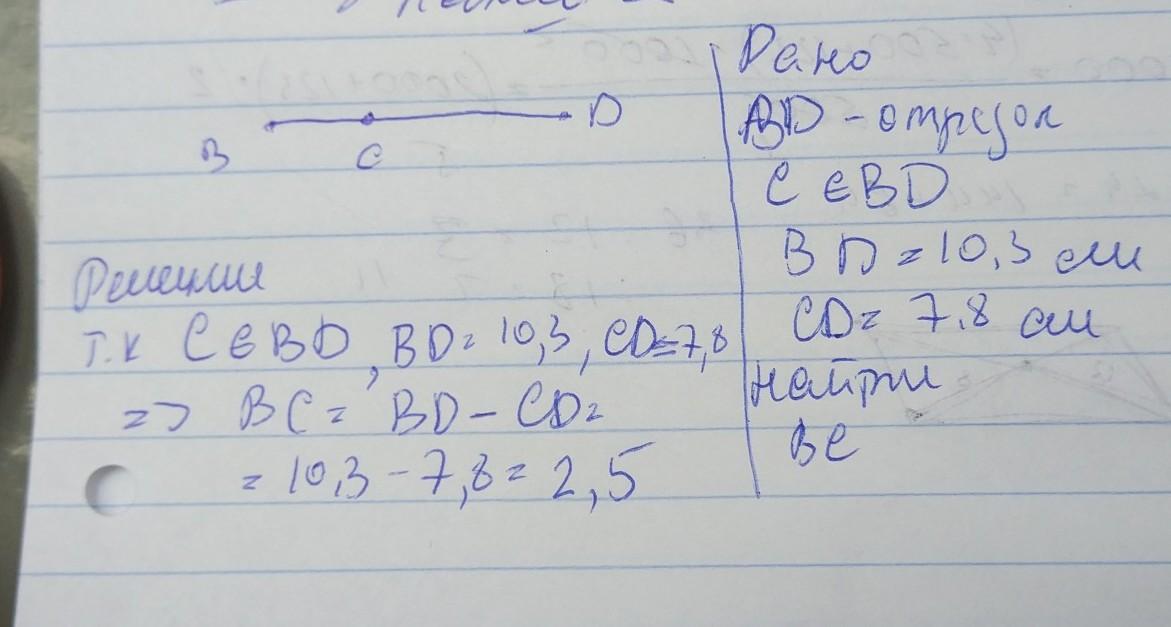 B C D
Дано
BD - отрезок
C ∈ BD
BD = 10,3 см
CD = 7,8 см
найти
BC
Решение
т.к C ∈ BD, BD = 10,3, CD = 7,8
=> BC = BD - CD =
= 10,3 - 7,8 = 2,5